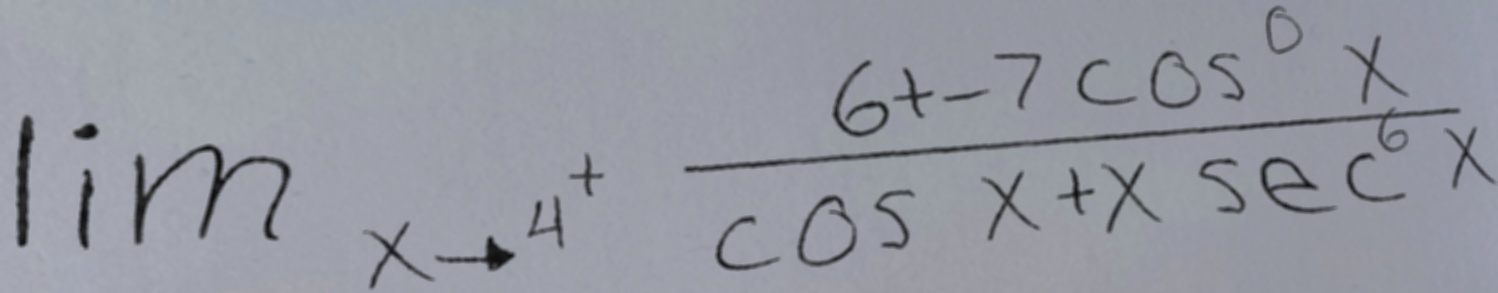 \lim_{x \to 4^+} \frac{6+-7\cos^0 x}{\cos x+x \sec^6 x}